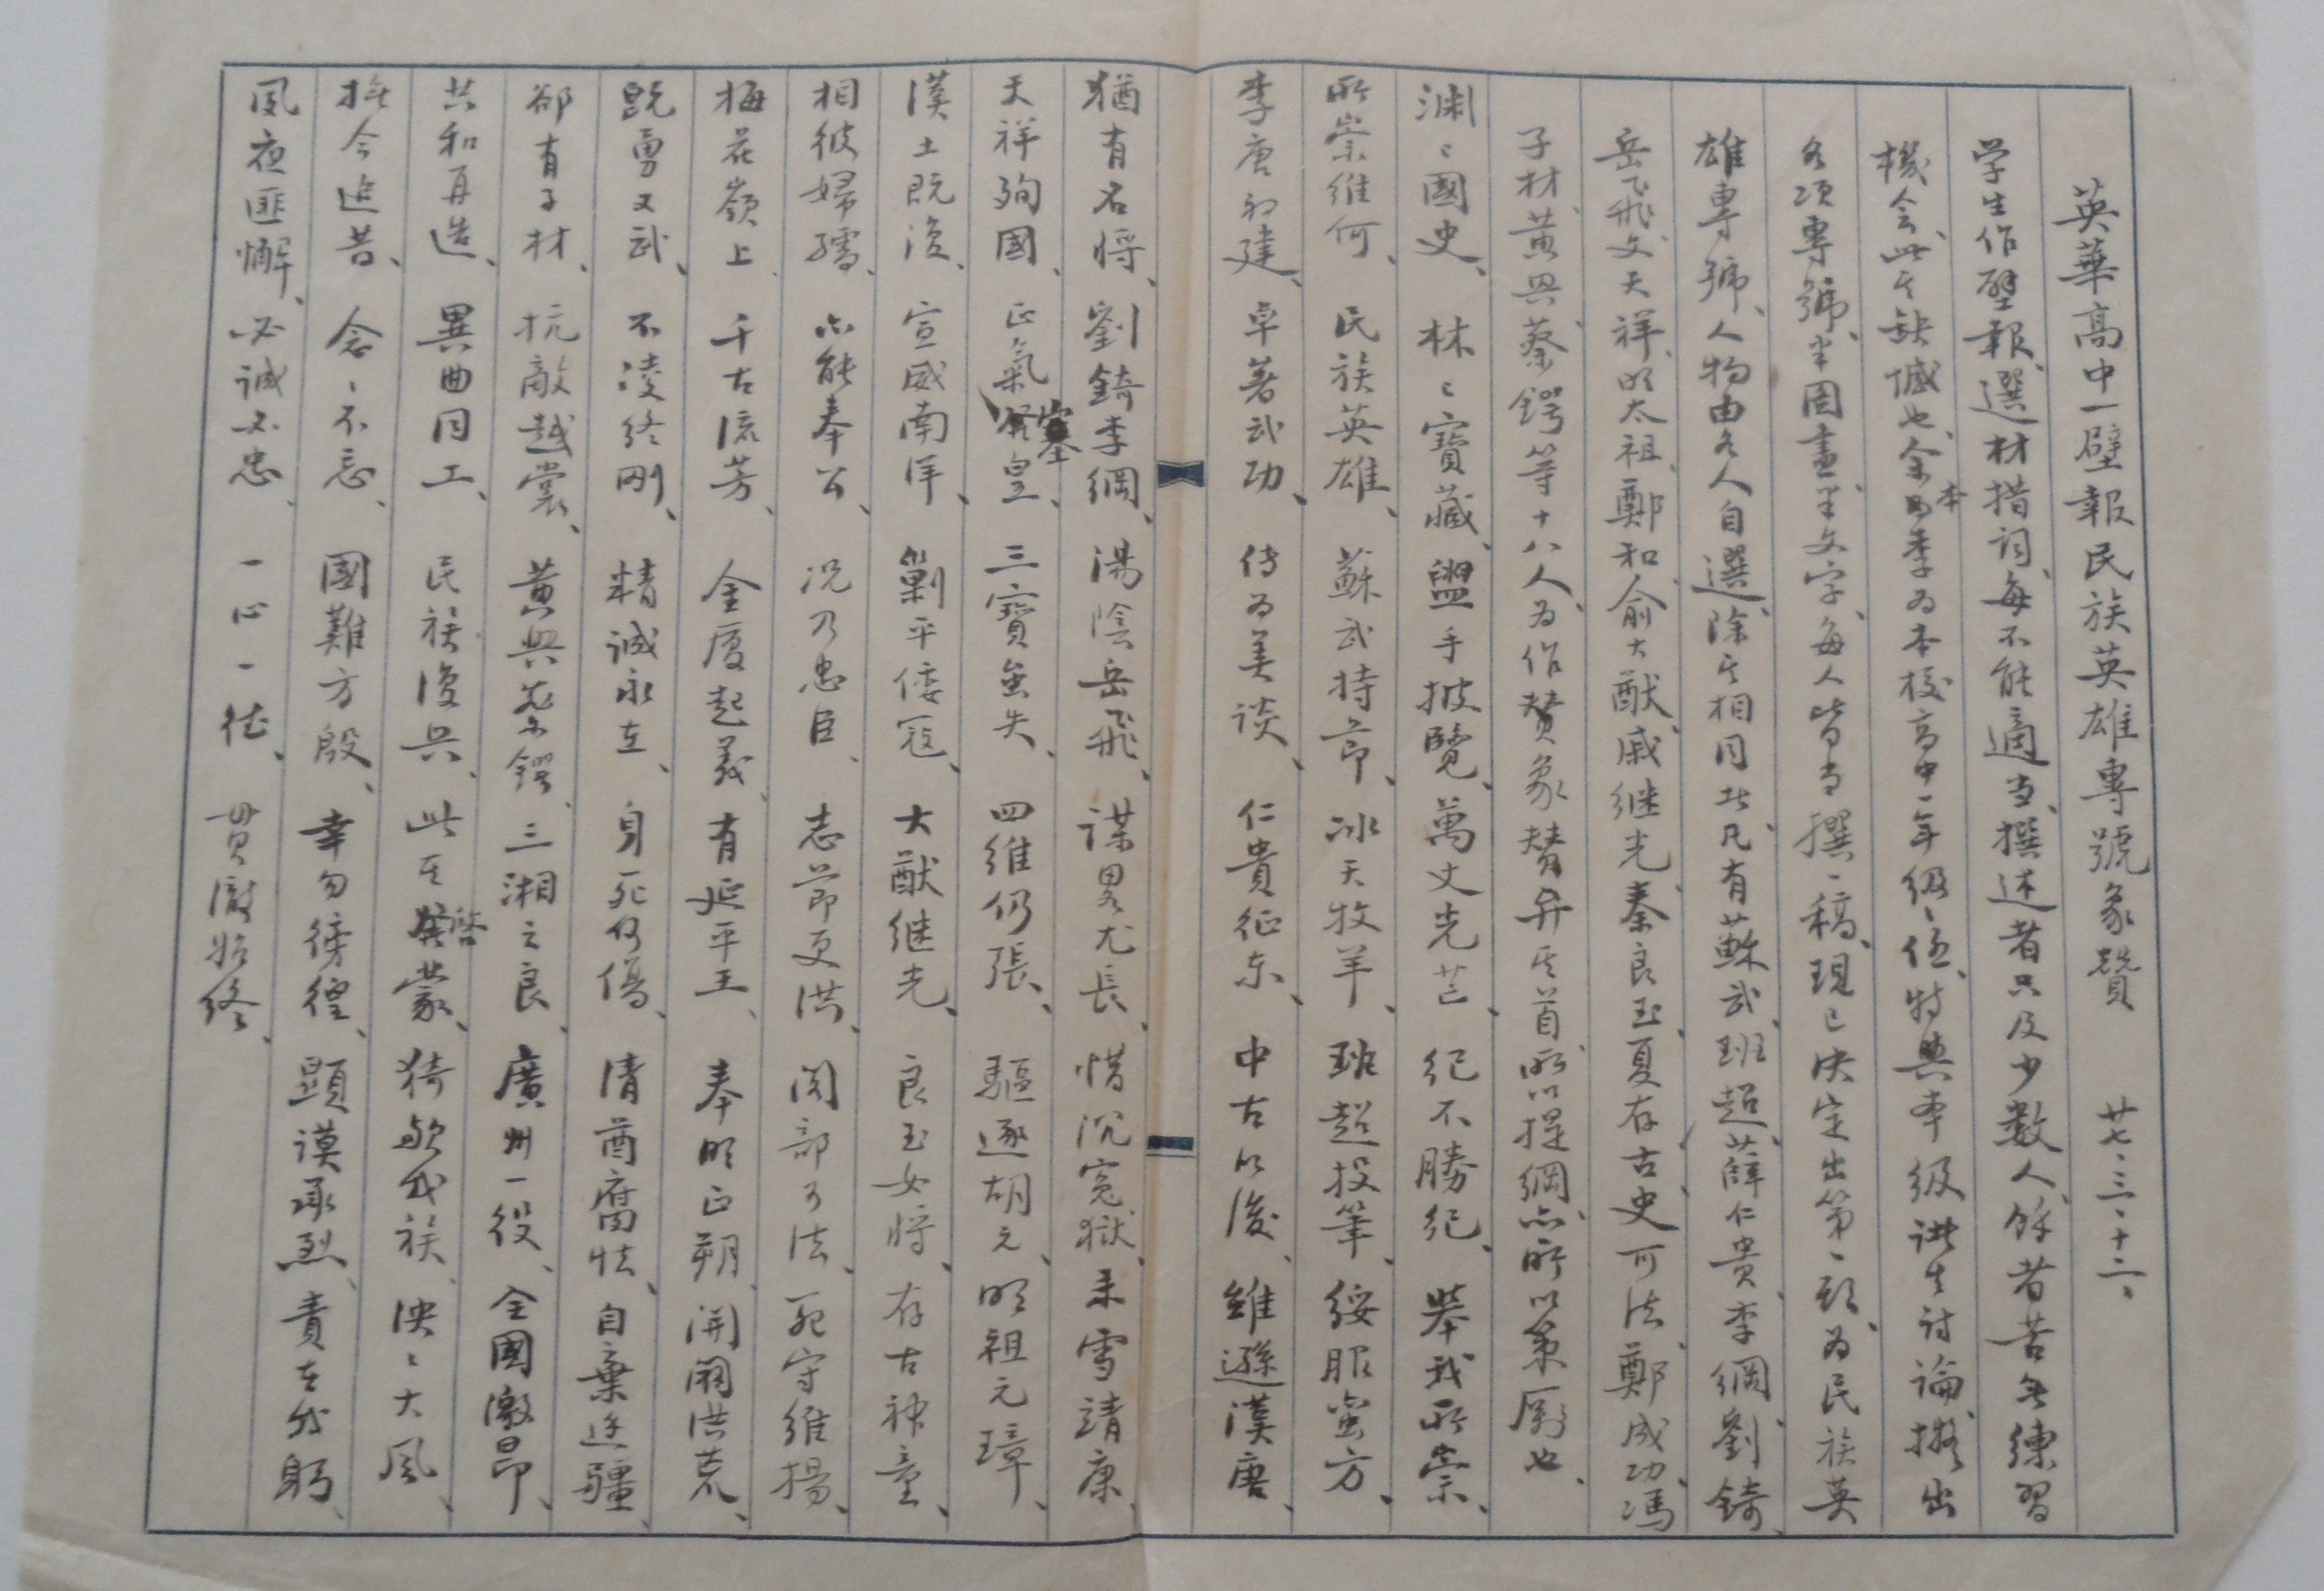 英華高中一壁報民族英雄專號象贊　廿七、三、十二、
学生作壁報、選材措詞、每不能適当、撰述者只及少數人、餘者苦無練習
機会、此其缺憾也、余本季为本校高中一年级级任、特與本级諸生討論、擬出
各項專號、半圖畫、半文字、每人皆当撰一稿、現已决定出第一期、为民族英
雄專號、人物由各人自選、除其相同者、凡有蘇武、班超、薛仁贵、李綱、劉錡、
岳飛、文天祥、明太祖、鄭和、俞大猷、戚继光、秦良玉、夏存古、史可法、鄭成功、馮
子材、黄興、蔡鍔等十八人、为作赞象赞弁其首、所以提綱、亦所以策厲也、
渊〻國史、林〻寶藏、盥手披覽、萬丈光芒、纪不勝纪、舉我所崇、
所崇维何、民族英雄、蘇武持节、冰天牧羊、班超投筆、绥服蛮方、
李唐初建、卓著武功、传为美谈、仁貴征东、中古以後、雖遜漢唐、
猶有名将、劉錡李綱、湯陰岳飛、谋畧尤長、惜沉冤狱、未雪靖康、
天祥殉國、正氣塞皇、三寶無失、四维仍張、驅逐胡元、明祖元璋、
漢土既復、宣威南洋、剿平倭寇、大猷继光、良玉女将、存古神童、
相彼婦孺、亦能奉公、况乃忠臣、志节更洪、阁部可法、死守维揚、
梅花嶺上、千古流芳、金廈起義、有延平王、奉明正朔、開闢洪荒、
既勇又武、不凌终刚、精诚永在、身死何傷、清酋腐怯、自棄邊疆、
郤有子材、抗敵越裳、黄興蔡鍔、三湘之良、廣州一役、全國激昂、
共和再造、異曲同工、民族復興、此其啓蒙、猗歟我族、泱〻大風、
抚今追昔、念〻不忘、國難方殷、幸勿徬徨、顕謨承烈、責在我躬、
夙夜匪懈、必诚必忠、一心一德、贯徹始终、